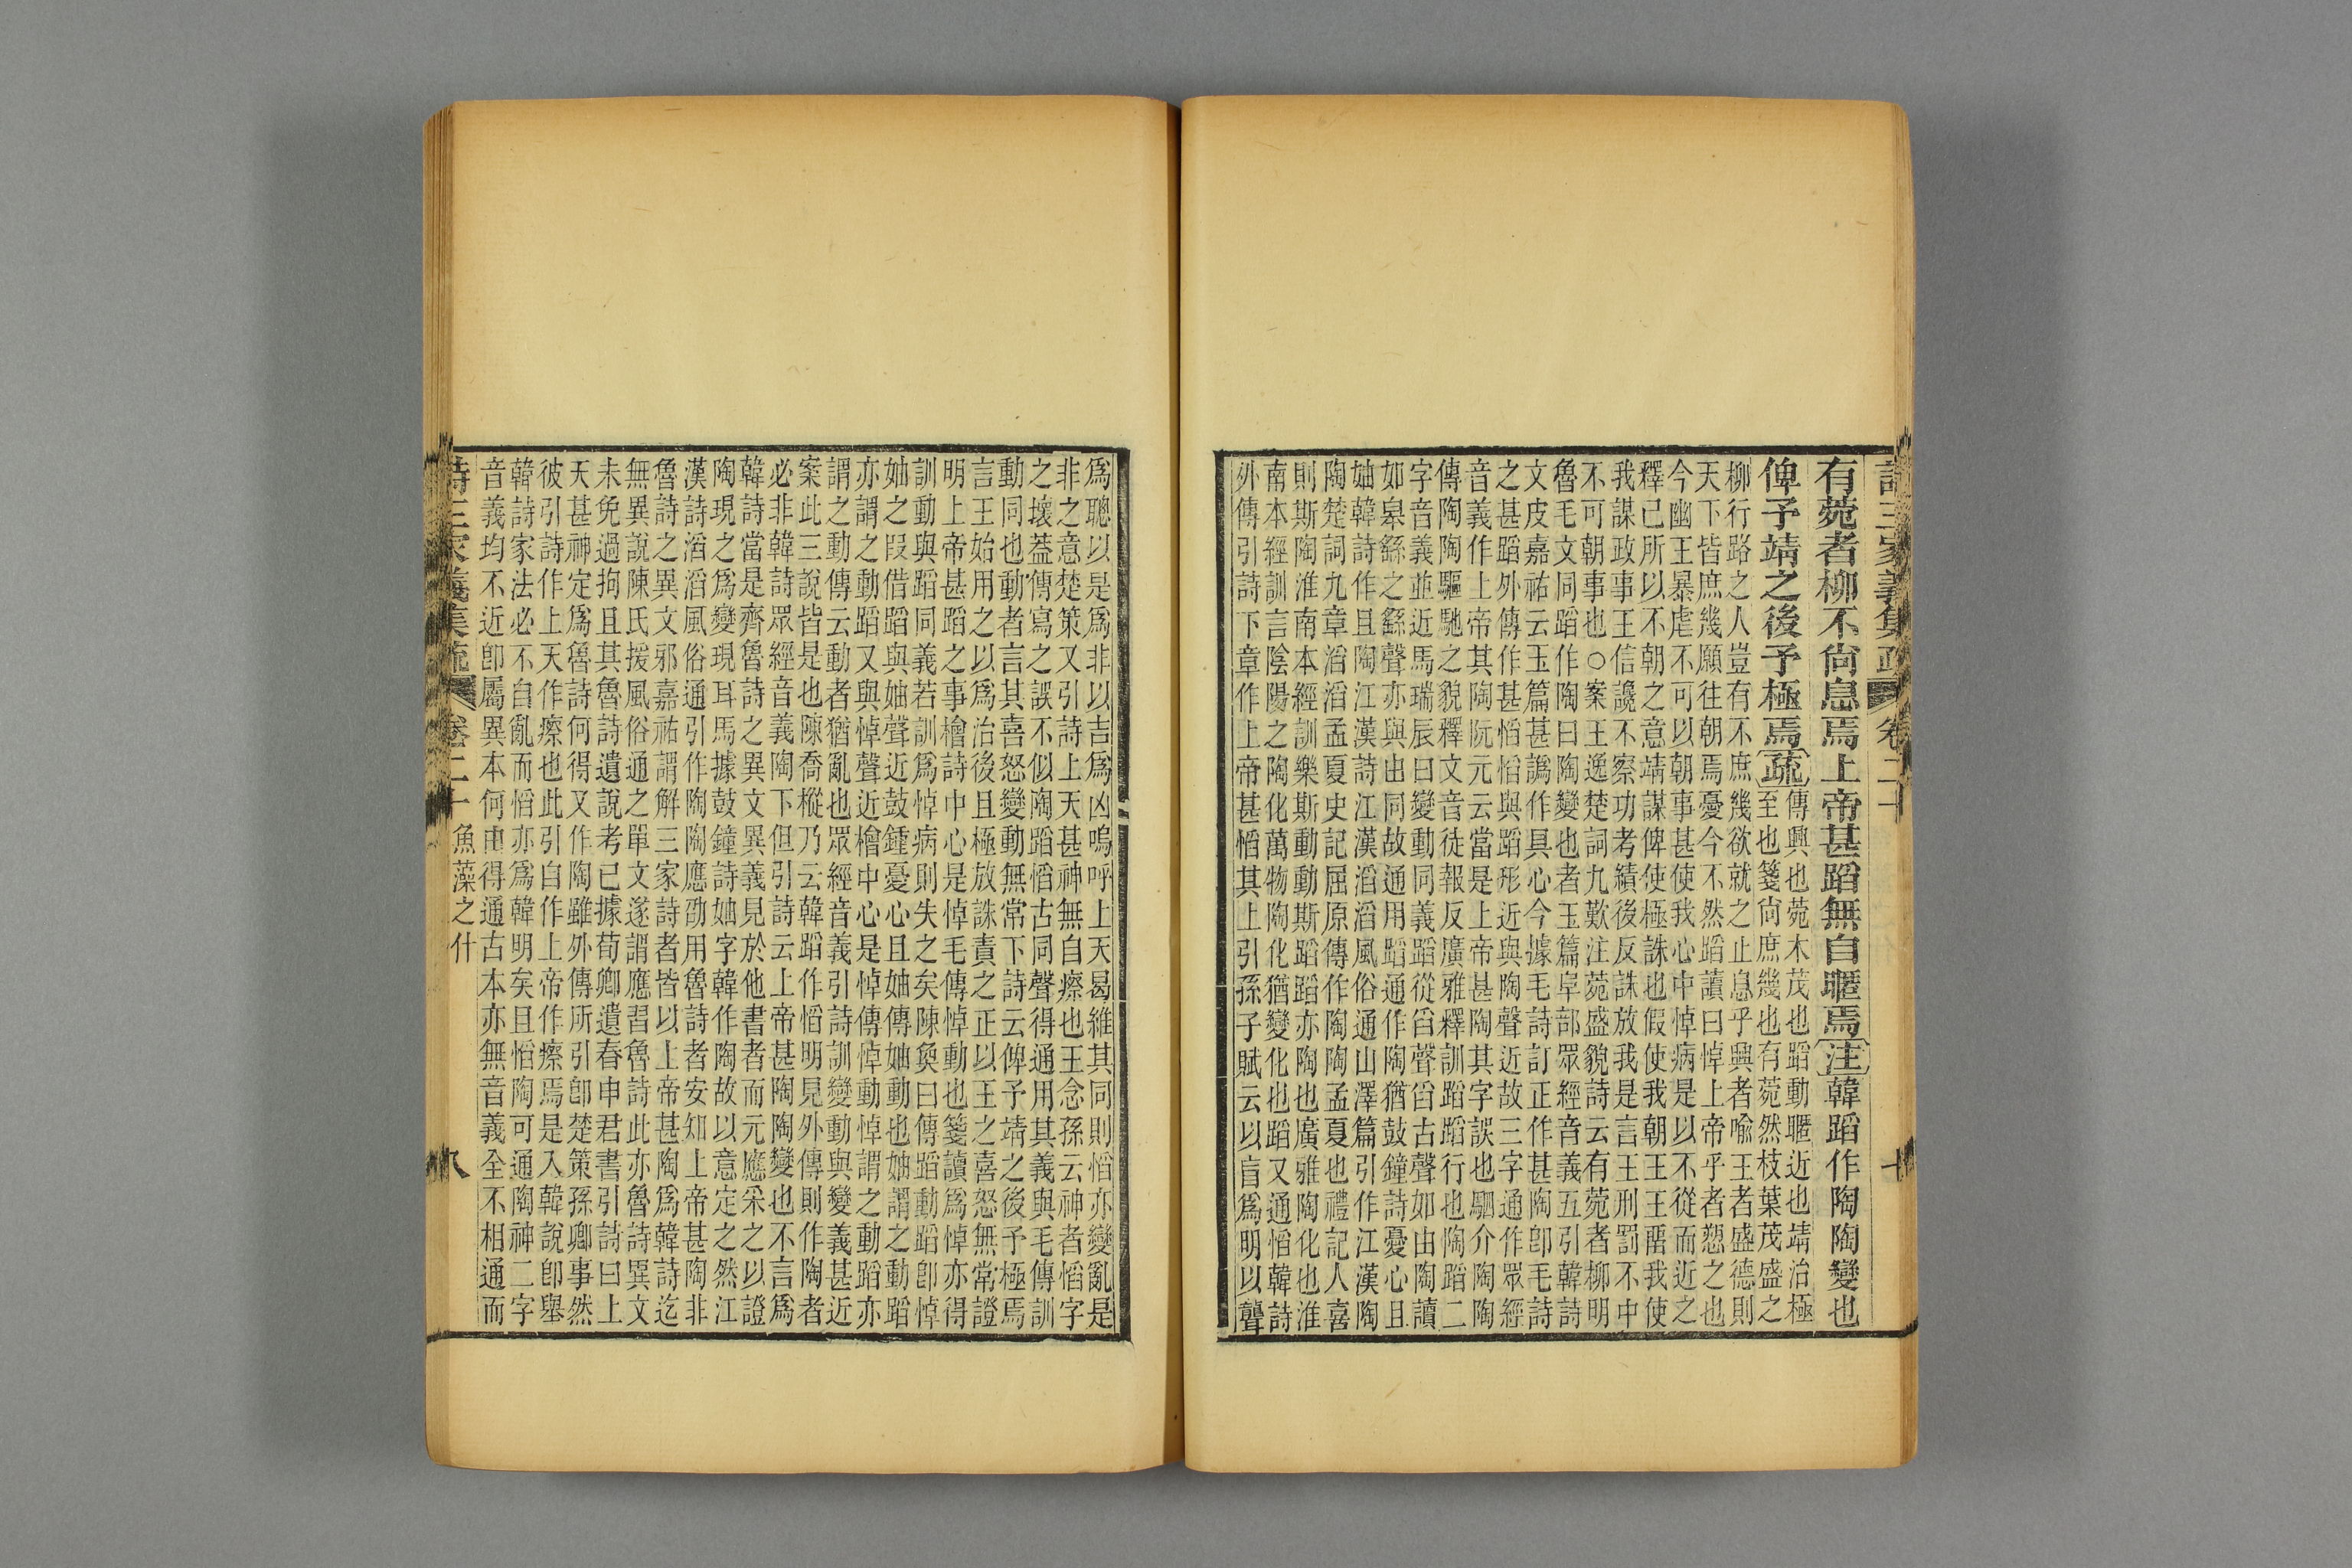 詩三家義集疏 卷二十 七
有菀者柳不尙息焉上帝甚蹈無自暱焉注韓蹈作陶陶變也
俾予靖之後予極焉疏傳興也菀木茂也蹈動暱近也靖治極
至也箋尙庶幾也有菀然枝葉茂盛之
柳行路之人豈有不庶幾欲就之止息乎興者喻王者盛德則
天下皆庶幾願往朝焉憂今不然蹈讀曰悼上帝乎者愬之也
今幽王暴虐不可以朝事甚使我心中悼病是以不從而近之
釋己所以不朝之意靖謀俾使極誅也假使我朝王王畱我使
我謀政事王信讒不察功考績後反誅放我是言王刑罰不中
不可朝事也○案王逸楚詞九歎注菀盛貌詩云有菀者柳明
魯毛文同蹈作陶曰陶變也者玉篇阜部眾經音義五引韓詩
文皮嘉祐云玉篇甚譌作具心今據毛詩訂正作甚陶卽毛詩
之甚蹈外傳作甚慆慆與蹈形近與陶聲近故三字通作眾經
音義作上帝其陶阮元云當是上帝甚陶其字誤也駟介陶陶
傳陶陶驅馳之貌釋文音徒報反廣雅釋訓蹈蹈行也陶蹈二
字音義並近馬瑞辰曰變動同義蹈從舀聲舀古聲如由陶讀
如皋繇之繇聲亦與由同故通用蹈通作陶猶鼓鐘詩憂心且
妯韓詩作且陶江漢詩江漢滔滔風俗通山澤篇引作江漢陶
陶楚詞九章滔滔孟夏史記屈原傳作陶陶孟夏也禮記人喜
則斯陶淮南本經訓樂斯動動斯蹈蹈亦陶也廣雅陶化也淮
南本經訓言陰陽之陶化萬物陶化猶變化也蹈又通慆韓詩
外傳引詩下章作上帝甚慆其上引孫子賦云以盲爲明以聾
爲聰以是爲非以吉爲凶嗚呼上天曷維其同則慆亦變亂是
非之意楚策又引詩上天甚神無自瘵也王念孫云神者慆字
之壞葢傳寫之誤不似陶蹈慆古同聲得通用其義與毛傳訓
動同也動者言其喜怒變動無常下詩云俾予靖之後予極焉
言王始用之以爲治後且極放誅責之正以王之喜怒無常證
明上帝甚蹈之事檜詩中心是悼毛傳悼動也箋讀爲悼亦得
訓動與蹈同義若訓爲悼病則失之矣陳奐曰傳蹈動蹈卽悼
妯之叚借蹈與妯聲近鼓鍾憂心且妯傳妯動也妯謂之動蹈
亦謂之動蹈又與悼聲近檜中心是悼傳悼動悼謂之動蹈亦
謂之動傳云動者猶亂也眾經音義引詩訓變動與變義甚近
案此三說皆是也陳喬樅乃云韓蹈作慆明見外傳則作陶者
必非韓詩眾經音義陶下但引詩云上帝甚陶陶變也不言爲
韓詩當是齊魯詩之異文異義見於他書者而元應采之以證
陶現之爲變現耳馬據鼓鐘詩妯字韓作陶故以意定之然江
漢詩滔滔風俗通引作陶陶應劭用魯詩者安知上帝甚陶非
魯詩之異文邪嘉祐謂解三家詩者皆以上帝甚陶爲韓詩迄
無異說陳氏援風俗通之單文遂謂應習魯詩此亦魯詩異文
未免過拘且其魯詩遺說考已據荀卿遺春申君書引詩曰上
天甚神定爲魯詩何得又作陶雖外傳所引卽楚策孫卿事然
彼引詩作上天作瘵也此引自作上帝作瘵焉是入韓說卽舉
韓詩家法必不自亂而慆亦爲韓明矣且慆陶可通陶神二字
音義均不近卽屬異本何由得通古本亦無音義全不相通而
詩三家義集疏 卷二十 魚藻之什 八